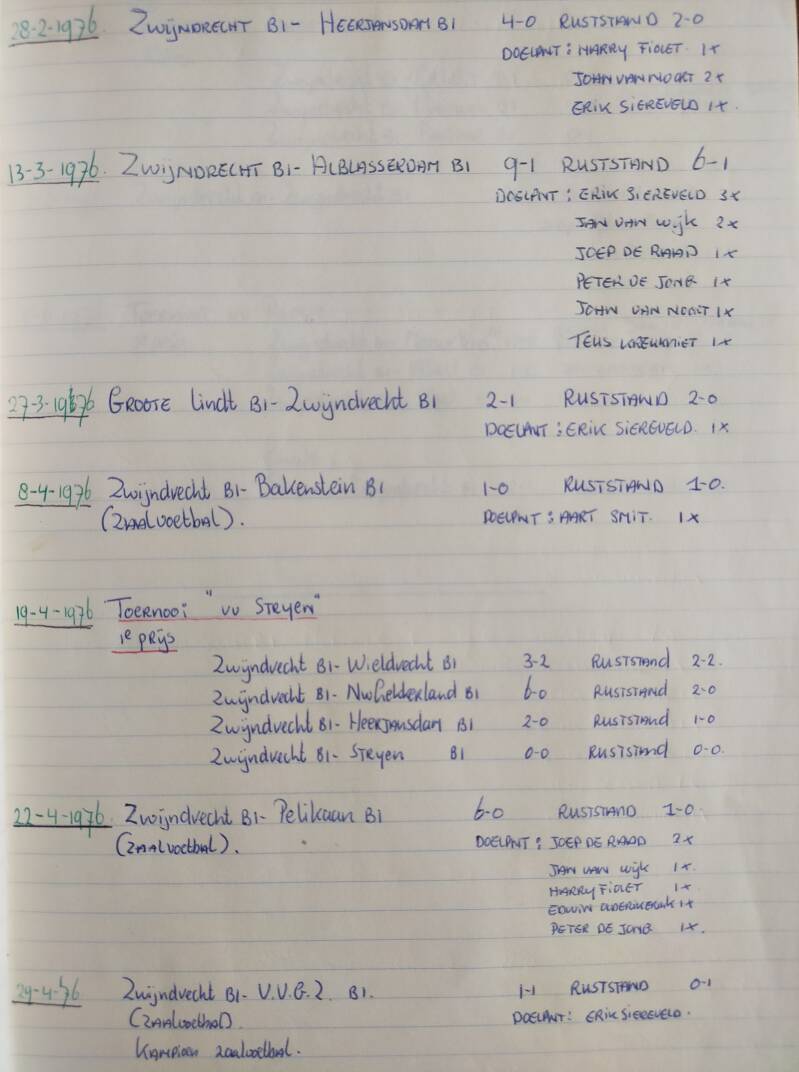 28-2-1976. Zwijndrecht B1 - Heerjansdam B1 4-0 Ruststand 2-0
Doelpnt: Harry Fiolet 1x
John van Noort 2x
Erik Siereveld 1x.
13-3-1976. Zwijndrecht B1 - Alblasserdam B1 9-1 Ruststand 6-1
Doelpnt: Erik Siereveld 3x
Jan van Wijk 2x
Joep de Raad 1x
Peter de Jong 1x
John van Noort 1x
Teus 1x
27-3-1976 Groote Lindt B1 - Zwijndrecht B1 2-1 Ruststand 2-0
Doelpnt: Erik Siereveld. 1x
8-4-1976 Zwijndrecht B1 - Bakenstein B1 1-0 Ruststand 1-0.
(Zaalvoetbal). Doelpnt: Aart Smit. 1x
19-4-1976 Toernooi "vv Stryen"
1e prijs
Zwijndrecht B1 - Wieldrecht B1 3-2 Ruststand 2-2.
Zwijndrecht B1 - Nw Gelderland B1 6-0 Ruststand 2-0
Zwijndrecht B1 - Heerjansdam B1 2-0 Ruststand 1-0
Zwijndrecht B1 - Stryen B1 0-0 Ruststand 0-0.
22-4-1976. Zwijndrecht B1 - Pelikaan B1 6-0 Ruststand 1-0
(Zaalvoetbal). Doelpnt: Joep de Raad 2x
Jan van Wijk 1x.
Harry Fiolet 1x
Edwin 1x
Peter de Jong 1x.
29-4-76 Zwijndrecht B1 - V.V.G.Z. B1. 1-1 Ruststand 0-1
(Zaalvoetbal). Doelpnt: Erik Siereveld.
Kampioen zaalvoetbal.